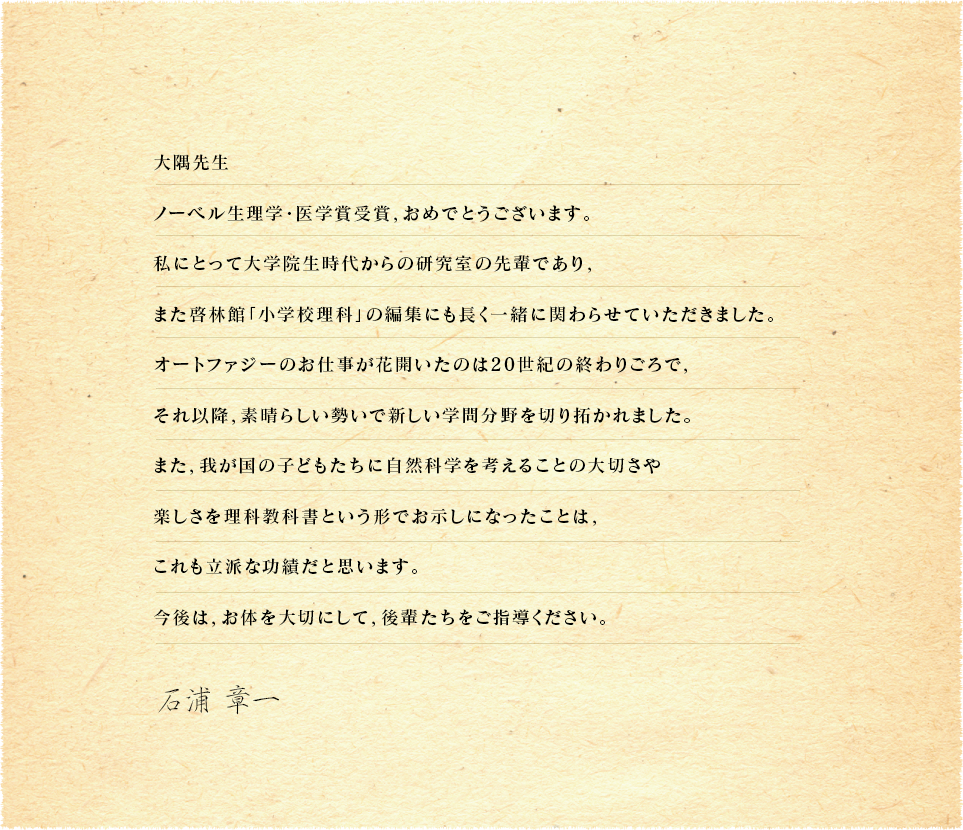 大隅先生
ノーベル生理学・医学賞受賞，おめでとうございます。
私にとって大学院生時代からの研究室の先輩であり，
また啓林館「小学校理科」の編集にも長く一緒に関わらせていただきました。
オートファジーのお仕事が花開いたのは20世紀の終わりごろで，
それ以降，素晴らしい勢いで新しい学問分野を切り拓かれました。
また，我が国の子どもたちに自然科学を考えることの大切さや
楽しさを理科教科書という形でお示しになったことは，
これも立派な功績だと思います。
今後は，お体を大切にして，後輩たちをご指導ください。
石浦 章一